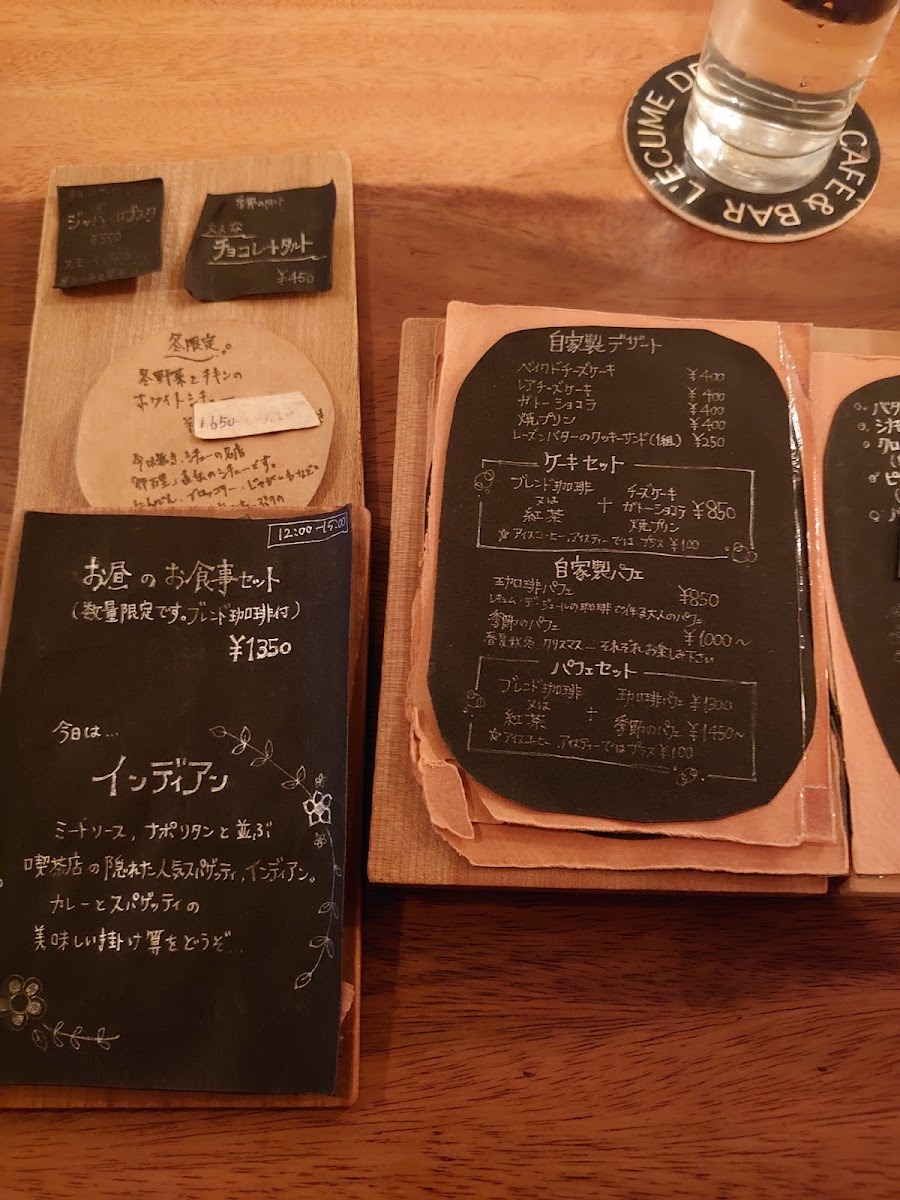 L'ECUME DE
CAFE & BAR
¥550
季節のタルト
大人な
チョコレートタルト
¥450
冬限定
冬野菜とチキンの
ホワイトシチュー
1,650-
12:00-15:00
お昼のお食事セット
(数量限定です。ブレンド珈琲付)
¥1350
今日は…
インディアン
ミートソース,ナポリタンと並ぶ
喫茶店の隠れた人気スパゲッティ,インディアン。
カレーとスパゲッティの
美味しい掛け算をどうぞ…
自家製デザート
ベイクドチーズケーキ ¥400
レアチーズケーキ ¥400
ガトーショコラ ¥400
焼プリン ¥400
レーズンバターのクッキーサンド(1組) ¥250
ケーキセット
ブレンド珈琲 又は 紅茶 + チーズケーキ ガトーショコラ 焼プリン ¥850
☆アイスコーヒー,アイスティーではプラス¥100
自家製パフェ
珈琲パフェ ¥850
レキュム・デ・ジュールの珈琲で作る大人のパフェ
季節のパフェ ¥1000~
春夏秋冬,クリスマス…それぞれお楽しみ下さい
パフェセット
ブレンド珈琲 又は 紅茶 + 珈琲パフェ ¥1300
季節のパフェ ¥1450~
☆アイスコーヒー,アイスティーではプラス¥100